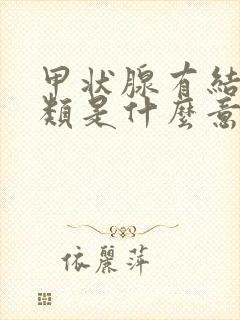 甲状腺有結
類是什麼意
依麗萍